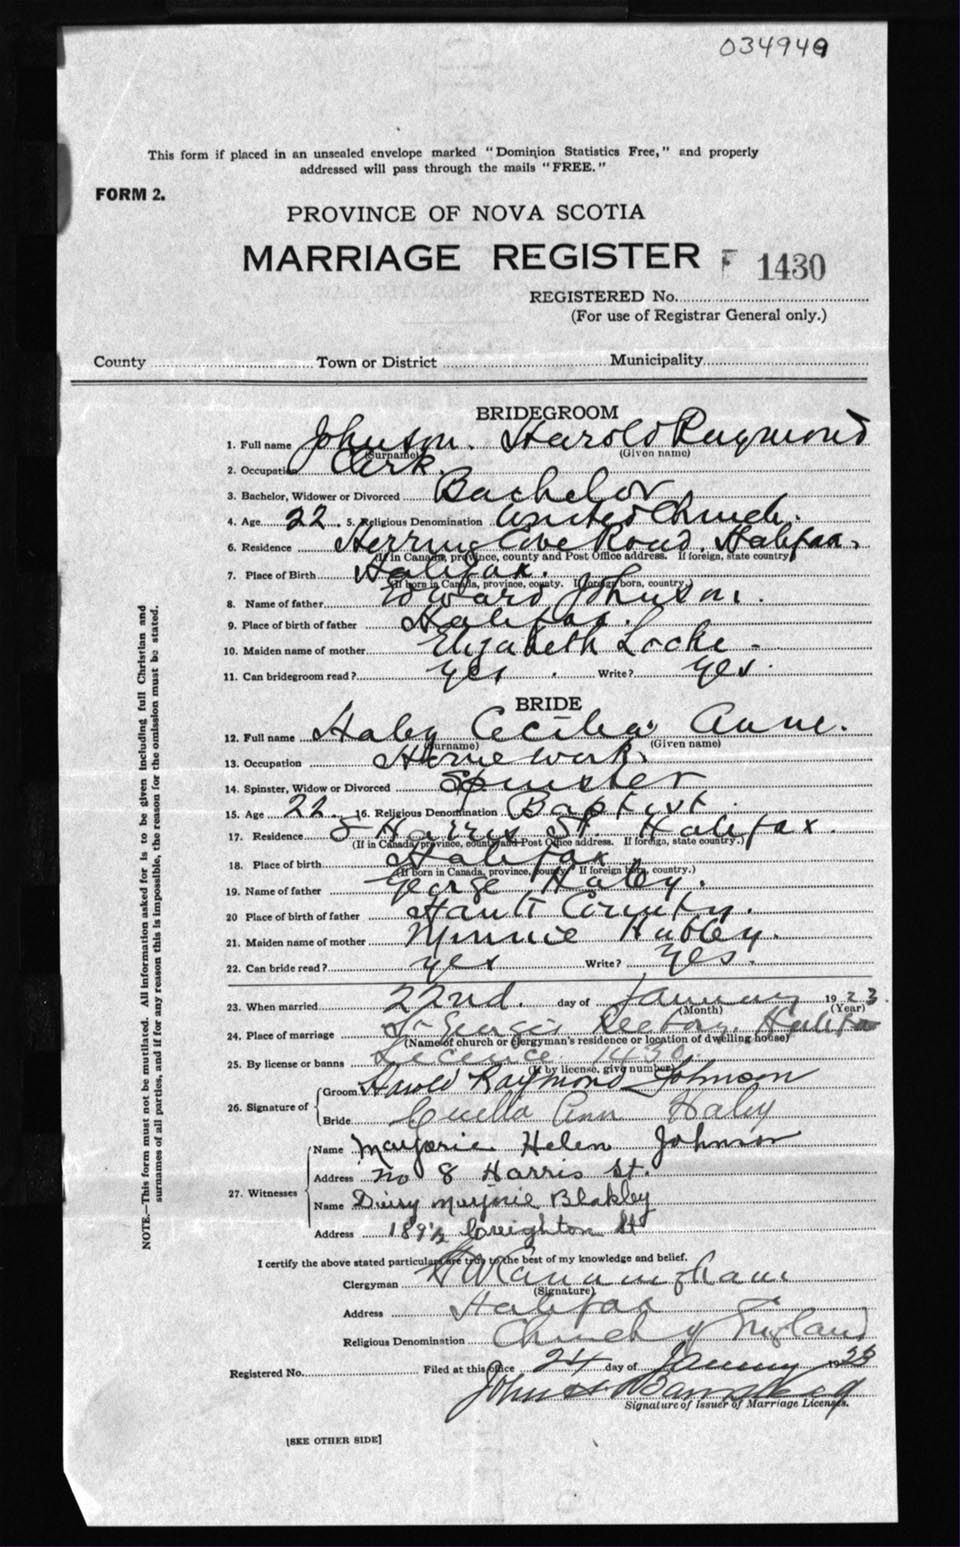 034949
This form if placed in an unsealed envelope marked "Dominion Statistics Free," and properly
addressed will pass through the mails "FREE."
FORM 2.
PROVINCE OF NOVA SCOTIA
MARRIAGE REGISTER F 1430
REGISTERED No.
(For use of Registrar General only.)
County Town or District Municipality
BRIDEGROOM
1. Full name Johnson. Harold Raymond
(Surname) (Given name)
2. Occupation Clerk.
3. Bachelor, Widower or Divorced Bachelor
4. Age 22. 5. Religious Denomination United Church.
6. Residence Herring Cove Road. Halifax.
(If in Canada, province, county and Post Office address. If foreign, state country.)
7. Place of Birth Halifax.
(If born in Canada, province, county. If foreign born, country.)
8. Name of father Edward Johnson.
9. Place of birth of father Halifax.
10. Maiden name of mother Elizabeth Locke -
11. Can bridegroom read? yes. Write? yes.
BRIDE
12. Full name Haley Cecilia Anne.
(Surname) (Given name)
13. Occupation Home work.
14. Spinster, Widow or Divorced Spinster
15. Age 22. 16. Religious Denomination Baptist.
17. Residence Harris St. Halifax.
(If in Canada, province, county and Post Office address. If foreign, state country.)
18. Place of birth Halifax
(If born in Canada, province, county. If foreign born, country.)
19. Name of father George Haley.
20 Place of birth of father Hants County.
21. Maiden name of mother Minnie Hubley.
22. Can bride read? yes Write? Yes.
23. When married 22nd. day of January 1923.
(Month) (Year)
24. Place of marriage St George's Rectory. Halifax
(Name of church or clergyman's residence or location of dwelling house)
25. By license or banns Licence 1430
(If by license, give number)
26. Signature of Groom Harold Raymond Johnson
Bride Cecilla Ann Haley
27. Witnesses Name Marjorie Helen Johnson
Address No 8 Harris St.
Name Daisy Marjorie Blakley
Address 189½ Creighton St
I certify the above stated particulars are true to the best of my knowledge and belief.
Clergyman H W Cunningham
(Signature)
Address Halifax
Religious Denomination Church of England
Registered No. Filed at this office 24 day of January 1923
John H
Signature of Issuer of Marriage Licenses.
[SEE OTHER SIDE]
NOTE.—This form must not be mutilated. All information asked for is to be given including full Christian and
surnames of all parties, and if for any reason this is impossible, the reason for the omission must be stated.